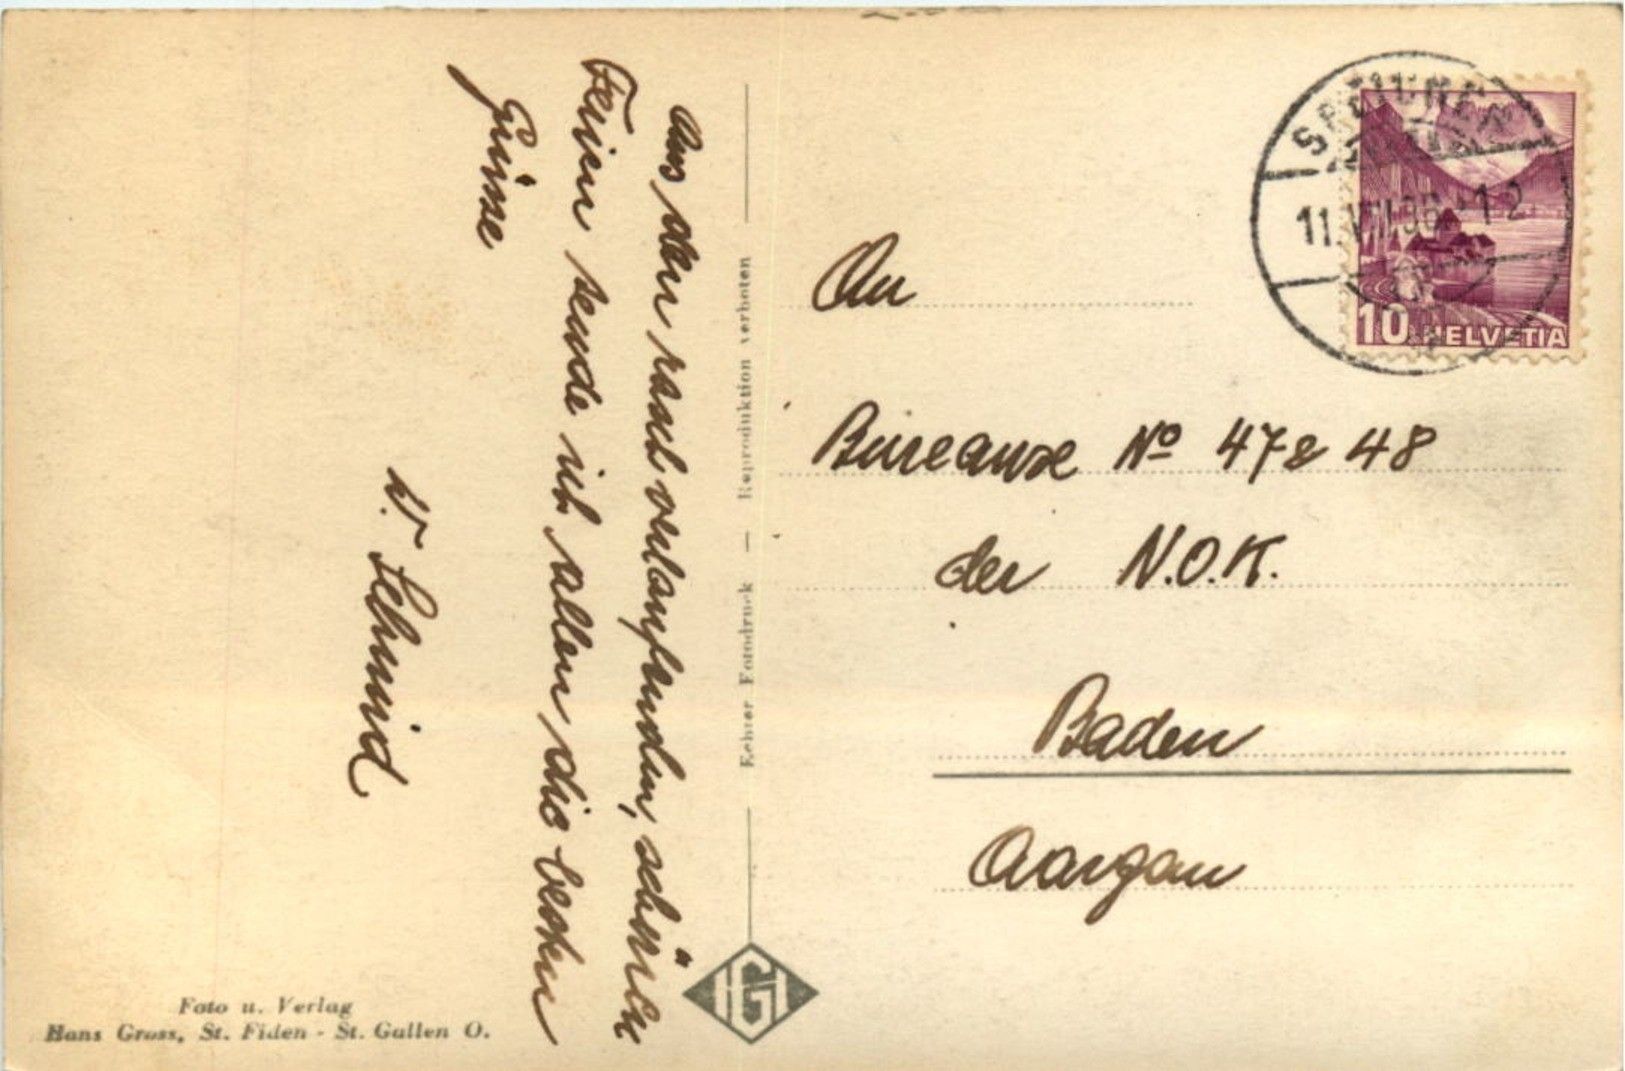 Aus den rasch verlaufenden, schönen
Ferien sende ich allen die besten
Grüsse
W. Schmid
An
Bureauxe Nº 47 & 48
der N.O.K.
Baden
Aargau
SPEICHER
11.VIII.36-12
10 HELVETIA
Echter Fotodruck — Reproduktion verboten
HG
Foto u. Verlag
Hans Gross, St. Fiden - St. Gallen O.